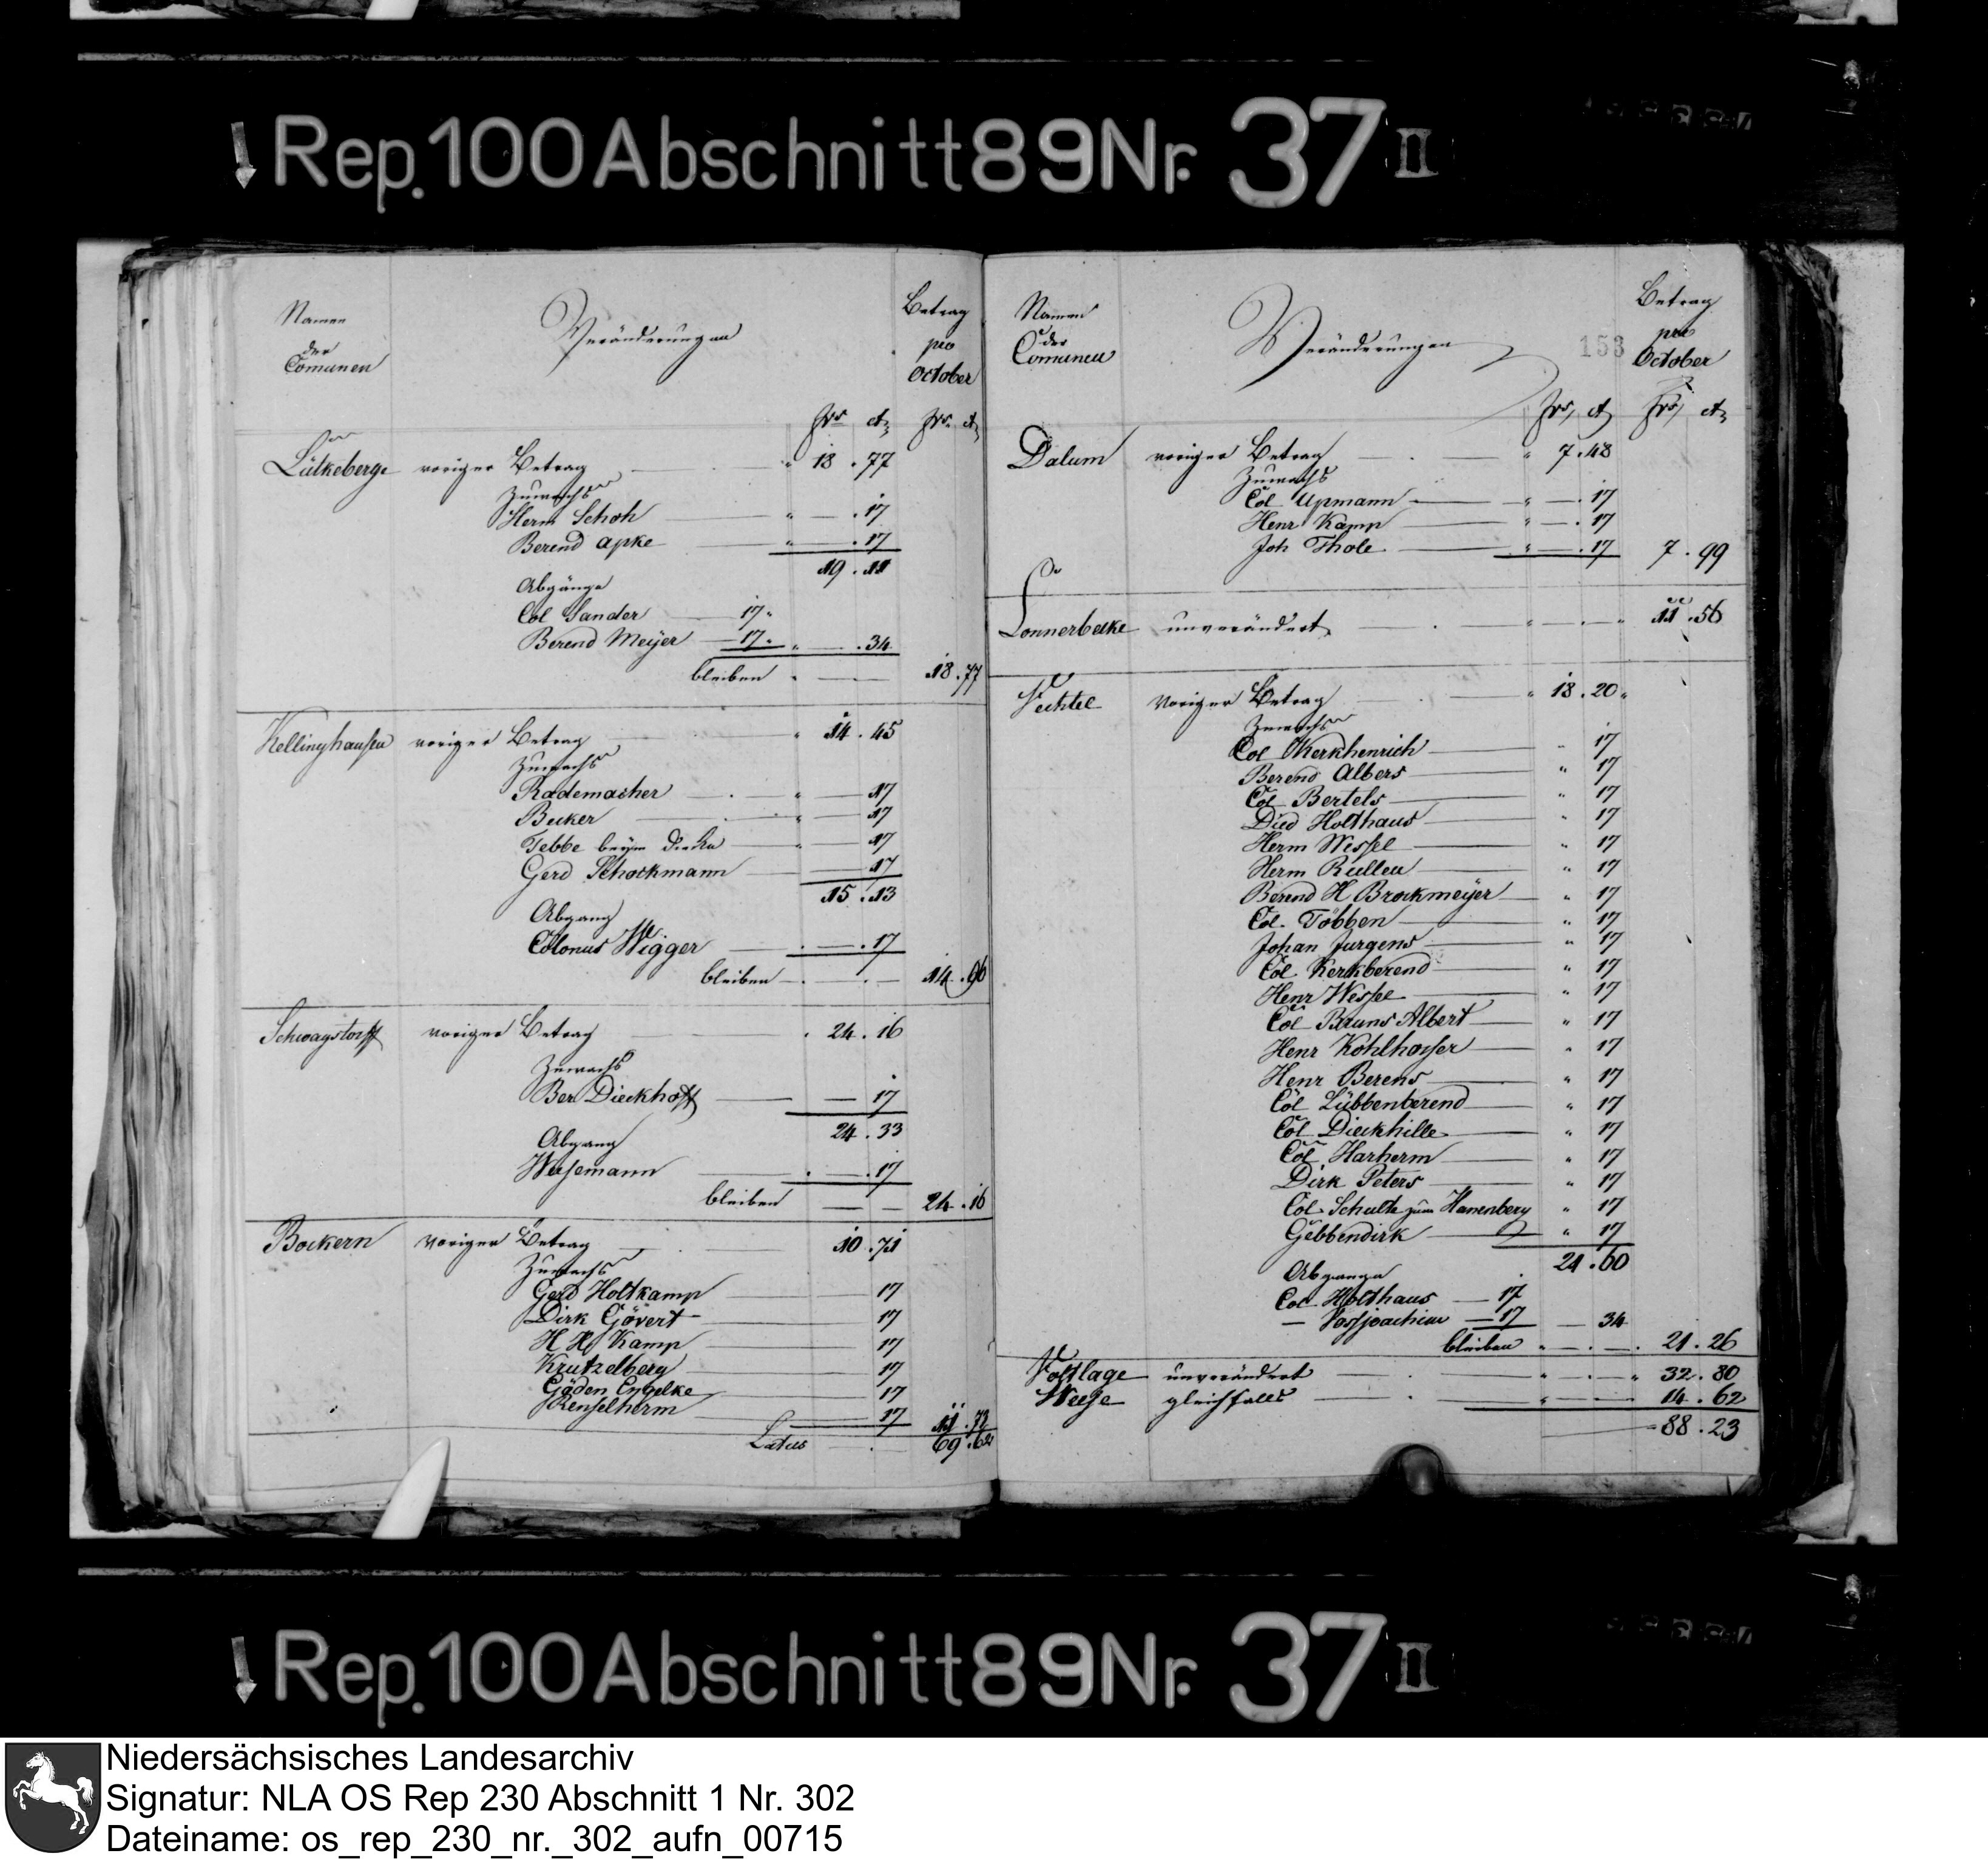 Rep. 100 Abschnitt 89 Nr. 37 II
Namen der Comunen
Veränderungen
Betrag pro October
frs ct frs ct
Lütkeberge voriger Betrag 18 . 77
Zuwachs
Herm Schoh 17
Berend Apke 17
19 . 11
Abgänge
Col Sander 17
Berend Meÿer 17 . 34
bleiben 18 . 77
Kellinghausen voriger Betrag 14 . 45
Zuwachs
Rademacher 17
Becker 17
Tebbe beÿm 17
Gerd Schockmann 17
15 . 13
Abgang
Colonus Wigger 17
bleiben 14 . 96
Schwagstorff voriger Betrag 24 . 16
Zuwachs
Ber Dieckhoff 17
24 . 33
Abgang
Wesemann 17
bleiben 24 . 16
Bockern voriger Betrag 10 . 71
Zuwachs
Gerd Holtkamp 17
Dirk Gövert 17
H H Kamp 17
Krutzelberg 17
Göden Engelke 17
Renselherm 17 11 . 73
Latus 69 . 62
Namen der Comunen
Veränderungen
153
Betrag pro October
frs ct frs ct
Dalum voriger Betrag 7 . 48
Zuwachs
Col Upmann 17
Henr Kamp 17
Joh Thole 17 7 . 99
Lonnerbecke unverändert 11 . 56
Vechtel voriger Betrag 18 . 20
Zuwachs
Col Kerkhenrich 17
Berend Albers 17
Col Bertels 17
Died Holthaus 17
Herm Wessel 17
Herm Rullen 17
Berend H Brockmeÿer 17
Col. Többen 17
Johan Jurgens 17
Col. Kerkberend 17
Henr Wessel 17
Col Bruns Albert 17
Henr Kohlhosser 17
Henr Berens 17
Col Lübbenberend 17
Col Dieckhille 17
Col Harherm 17
Dirk Peters 17
Col. Schulte zum Hanenberg 17
Gebbendirk 17
21 . 60
Abgange
Col Holthaus 17
— Vosjoachim 17 — 34
bleiben 21 . 26
Voltlage unverändert 32 . 80
Weese gleichfalls 14 . 62
88 . 23
Rep. 100 Abschnitt 89 Nr. 37 II
Niedersächsisches Landesarchiv
Signatur: NLA OS Rep 230 Abschnitt 1 Nr. 302
Dateiname: os_rep_230_nr._302_aufn_00715